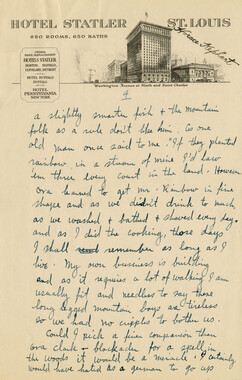 HOTEL STATLER
ST. LOUIS
650 ROOMS, 650 BATHS
HOTELS STATLER
BOSTON BUFFALO
CLEVELAND DETROIT
HOTEL
PENNSYLVANIA
NEW YORK
Washington Avenue at Ninth and Saint Charles
Horace Kephart
1
a slightly smarter fish & the mountain
folk as a rule don't like him. As one
old man once said to me. "If they planted
rainbow in a stream of mine I'd law
'em thro every court in the land. However
ora learned to get Mr. Rainbow in fine
shape and as we didn't drink to much
as we washed & bathed & shaved every day,
and as I did the cooking, those days
I shall remember as long as I
live. My own business is building
and as it requires a lot of walking I am
usually fit and needless to say those
long legged mountain boys are tireless
so we had no cripples to bother us.
Could I pick a finer companion than
ora clark & blockader for a spell in
the woods it would be a miracle. I certainly
would have hated as a german to go up